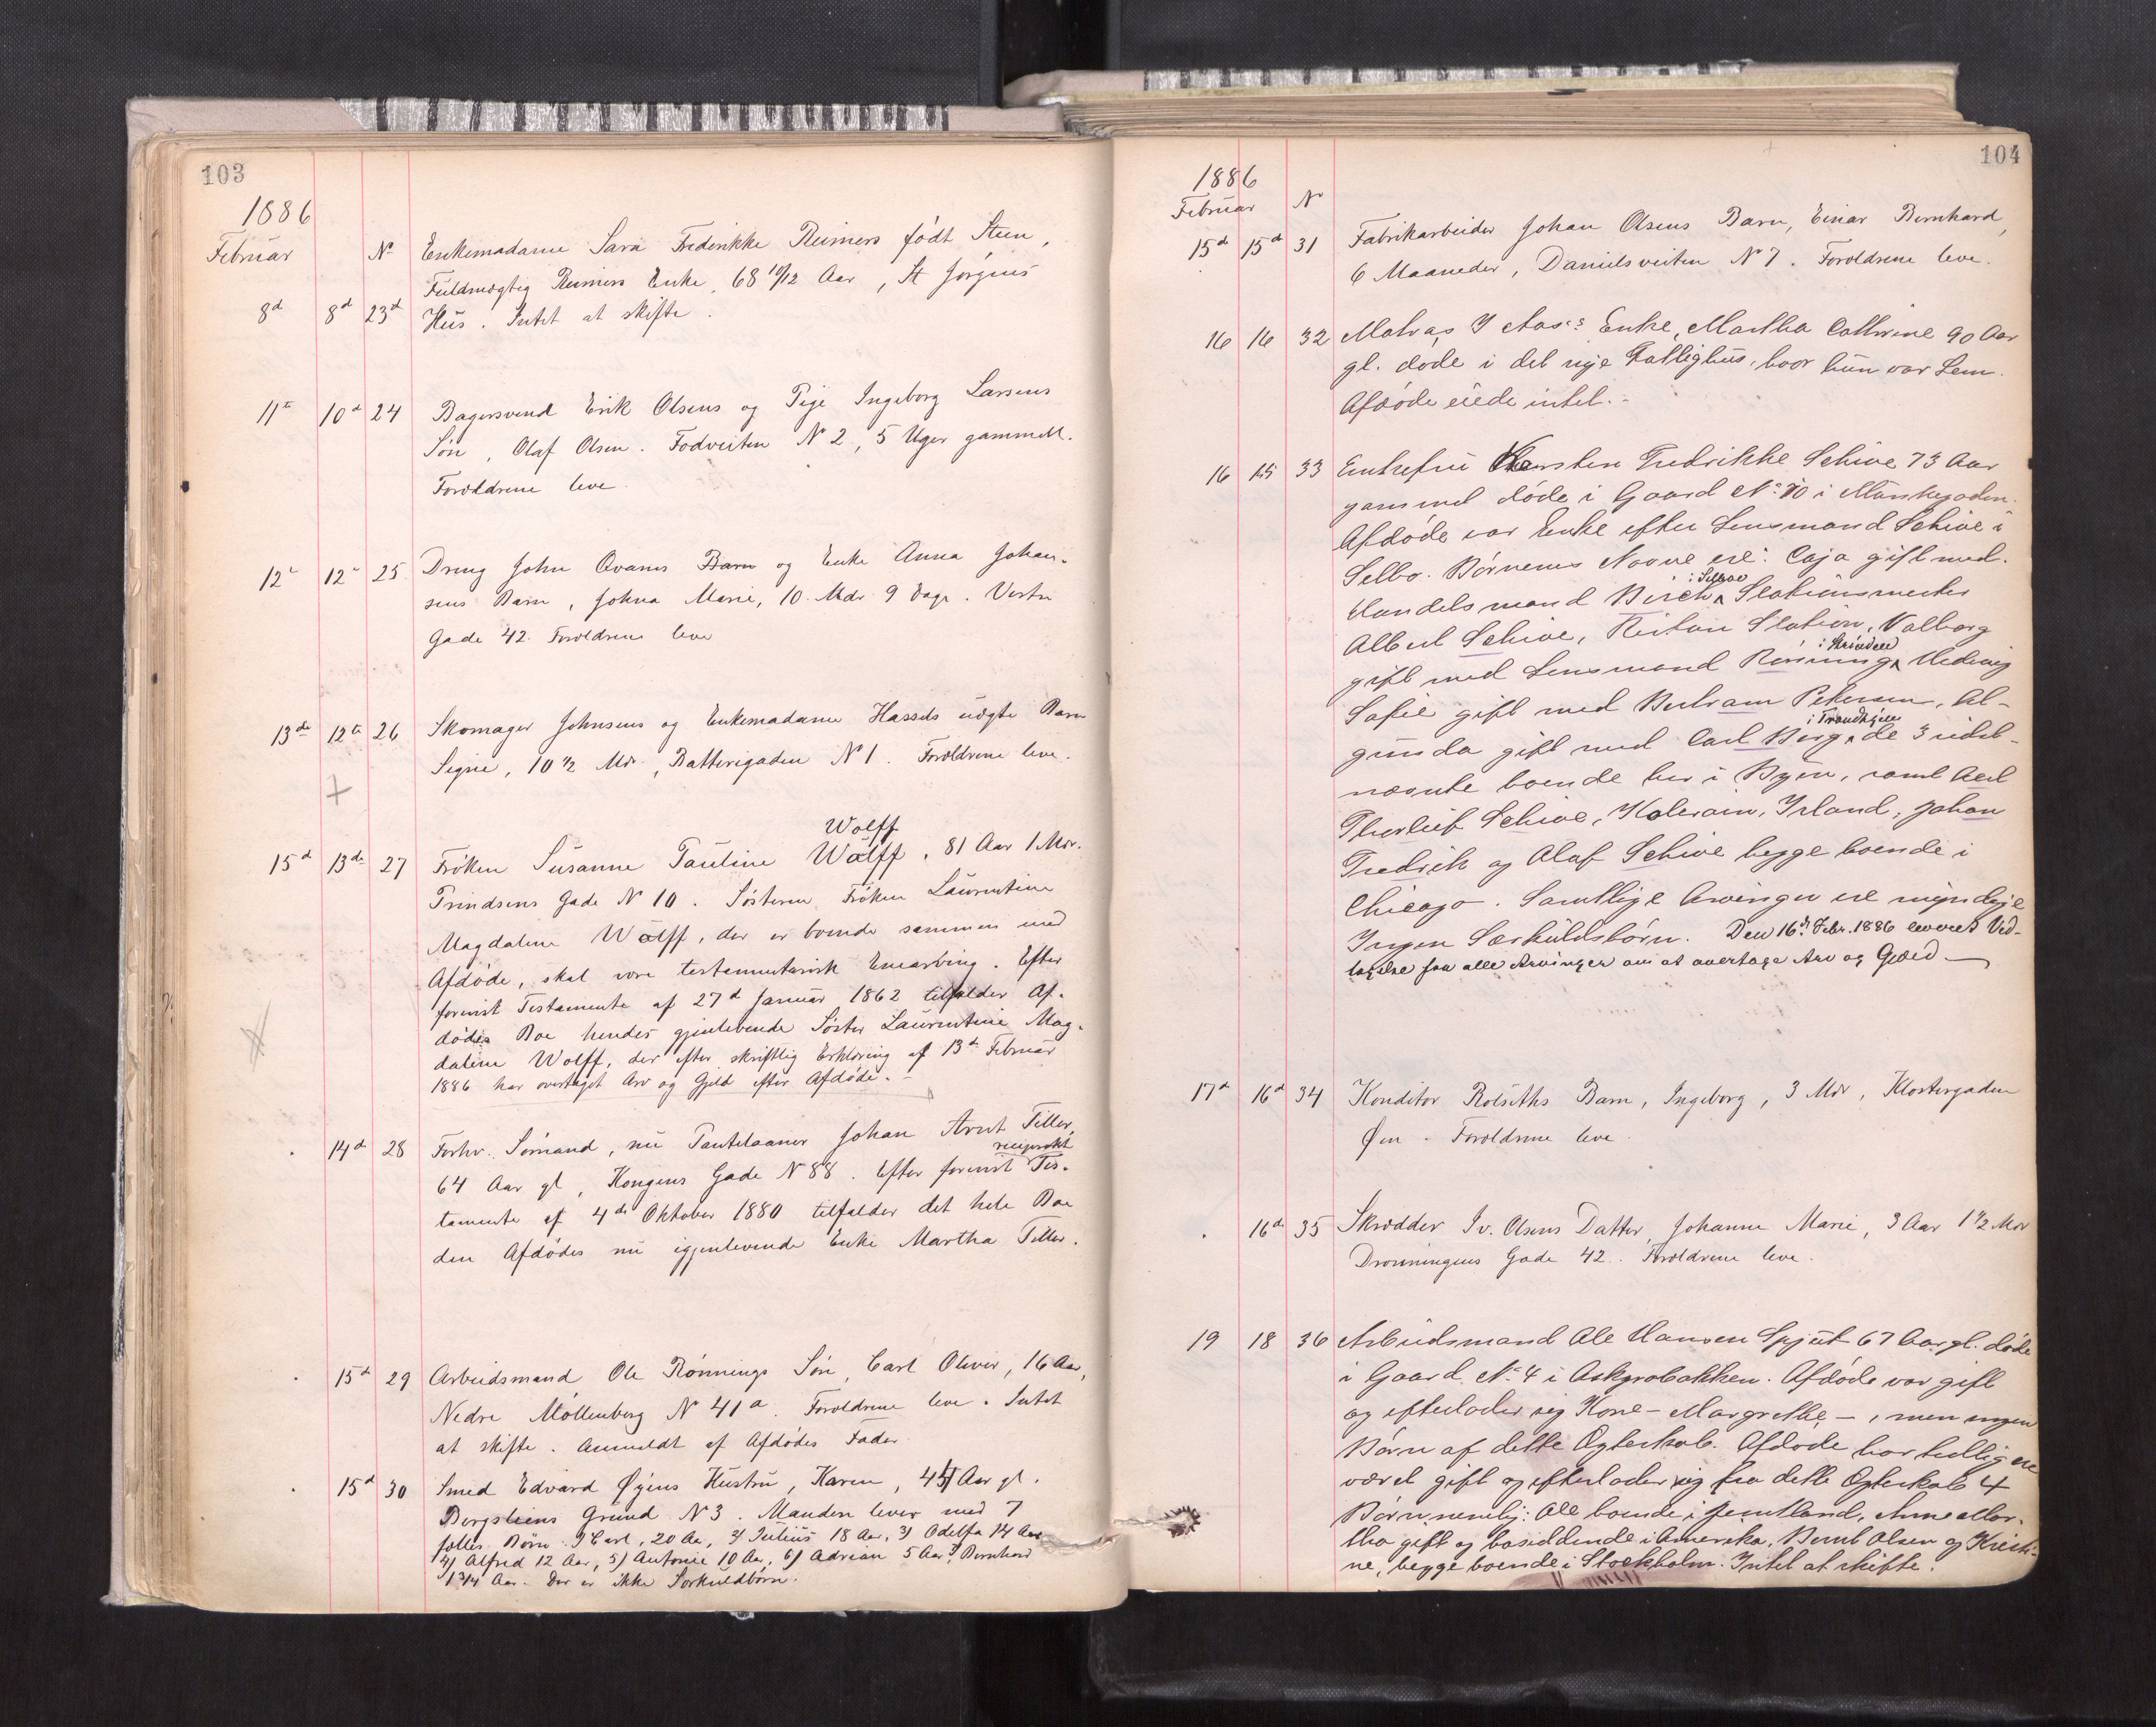 103
1886
Februar
No
Enkemadame Sara Frederikke Reimers født Steen,
Fuldmægtig Reimers Enke, 68 10/12 Aar, St Jørgens
8d 8d 23d Hus. Intet at skifte.
11te 10d 24 Bagersvend Erik Olsens og Pige Ingeborg Larsens
Søn, Olaf Olsen. Fodveiten No 2, 5 Uger gammel.
Forældrene leve
12te 12te 25 Dreng John Qvams Barn og Enke Anna Johan-
sens Barn, Johna Marie, 10 Mdr 9 Dage. Vestre
Gade 42. Forældrene leve
13de 12te 26 Skomager Johnsens og Enkemadame Hassels uægte Barn
Signe, 10 1/2 Mdr., Batterigaden No 1. Forældrene leve.
Wolff
15d 13de 27 Frøken Susanne Pauline Wolff, 81 Aar 1 Mdr.
Prindsens Gade No 10. Søsteren Frøken Laurentine
Magdalene Wolff, der er boende sammen med
Afdøde, skal være testamentarisk Enearving. Efter
forevist Testamente af 27d Januar 1862 tilfalder Af-
dødes Boe hendes gjenlevende Søster Laurentine Mag-
dalene Wolff, der efter skriftlig Erklæring af 13de Februar
1886 har overtaget Arv og Gjeld efter Afdøde.
14d 28 Forhv. Sømand, nu Pantelaaner Johan Arnt Tiller,
reciprokt
64 Aar gl, Kongens Gade No 88. Efter forevist Tes-
tamente af 4de Oktober 1880 tilfalder det hele Boe
den Afdødes nu igjenlevende Enke Martha Tiller.
15d 29 Arbeidsmand Ole Rønnings Søn, Carl Oliver, 16 Aar,
Nedre Møllenberg No 41a. Forældrene leve. Intet
at skifte. Anmeldt af Afdødes Fader
15d 30 Smed Edvard Øyens Hustru, Karen, 45 Aar gl.
Bergsliens Grund No 3. Manden lever med 7
fælles Børn 1) Carl, 20 Aar, 2) Julius 18 Aar, 3) Odelfa 14 Aar
4) Alfred 12 Aar, 5) Antonie 10 Aar, 6) Adrian 5 Aar 7) Bernhard
1 3/4 Aar. Der er ikke Særkuldbørn.
104
1886
Februar No
15d 15d 31 Fabrikarbeider Johan Olsens Barn, Einar Bernhard,
6 Maaneder, Danielsveiten No 7. Forældrene leve.
16 16 32 Enke, Martha Cathrine 90 Aar
gl. døde i det nye Fattighus, hvor hun var Lem.
Afdøde eiede intet.
16 15 33 Enkefru Karsten Fredrikke Schive 73 Aar
gammel døde i Gaard No 10 i Munkegaden.
Afdøde var Enke efter Lensmand Schive i
Selbo. Børnenes Navne ere: Caja gift med
i Selboe
Handelsmand Birch, Stationsmester
Albert Schive, Reitan Station, Valborg
i Strinden
gift med Lensmand Rønning, Hedevig
Sofie gift med Bertram Petersen, Al-
i Trondhjem
gunda gift med Carl Berg, de 3 sidst-
nævnte boende her i Byen, samt Carl
Thorleif Schive, Kolerain, Irland, Johan
Fredrik og Olaf Schive begge boende i
Chicago. Samtlige Arvinger ere myndige
Ingen Særkuldsbørn. Den 16d Febr. 1886 leveret Ved-
tagelse fra alle Arvinger om at overtage Arv og Gjæld
17d 16d 34 Konditor Rolseths Barn, Ingeborg, 3 Mdr, Klostergaden
Øen. Forældrene leve.
16d 35 Skrædder Iv. Olsens Datter, Johanne Marie, 3 Aar 1 1/2 Mdr
Dronningens Gade 42. Forældrene leve.
19 18 36 Arbeidsmand Ole Hansen Spjut 67 Aar gl. døde
i Gaard No 4 i Askprobakken. Afdøde var gift
og efterlader sig Kone - Margrethe -, men ingen
Børn af dette Ægteskab. Afdøde har tidligere
været gift og efterlader sig fra dette Ægteskab 4
Børn, nemlig: Ole boende i Jemtland, Anne Mar-
tha gift og bosiddende i Amerika, Bernt Olsen og Kristi-
ne, begge boende i Stockholm. Intet at skifte.